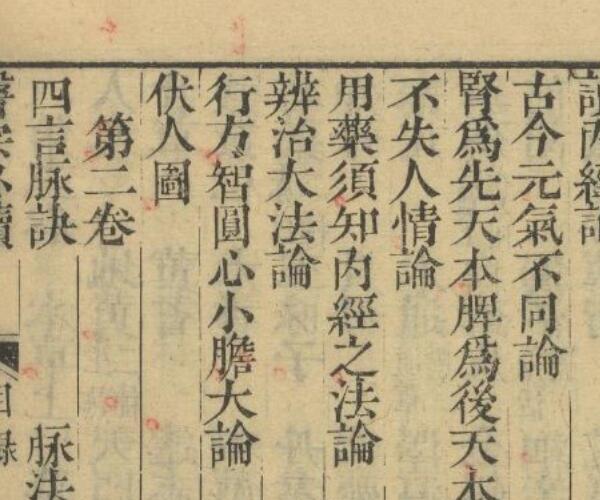 讀內經論
古今元氣不同論
腎爲先天本脾爲後天本
不失人情論
用藥須知內經之法論
辨治大法論
行方智圓心小膽大論
伏人圖
第二卷
四言脉訣
脉法
目錄
必讀